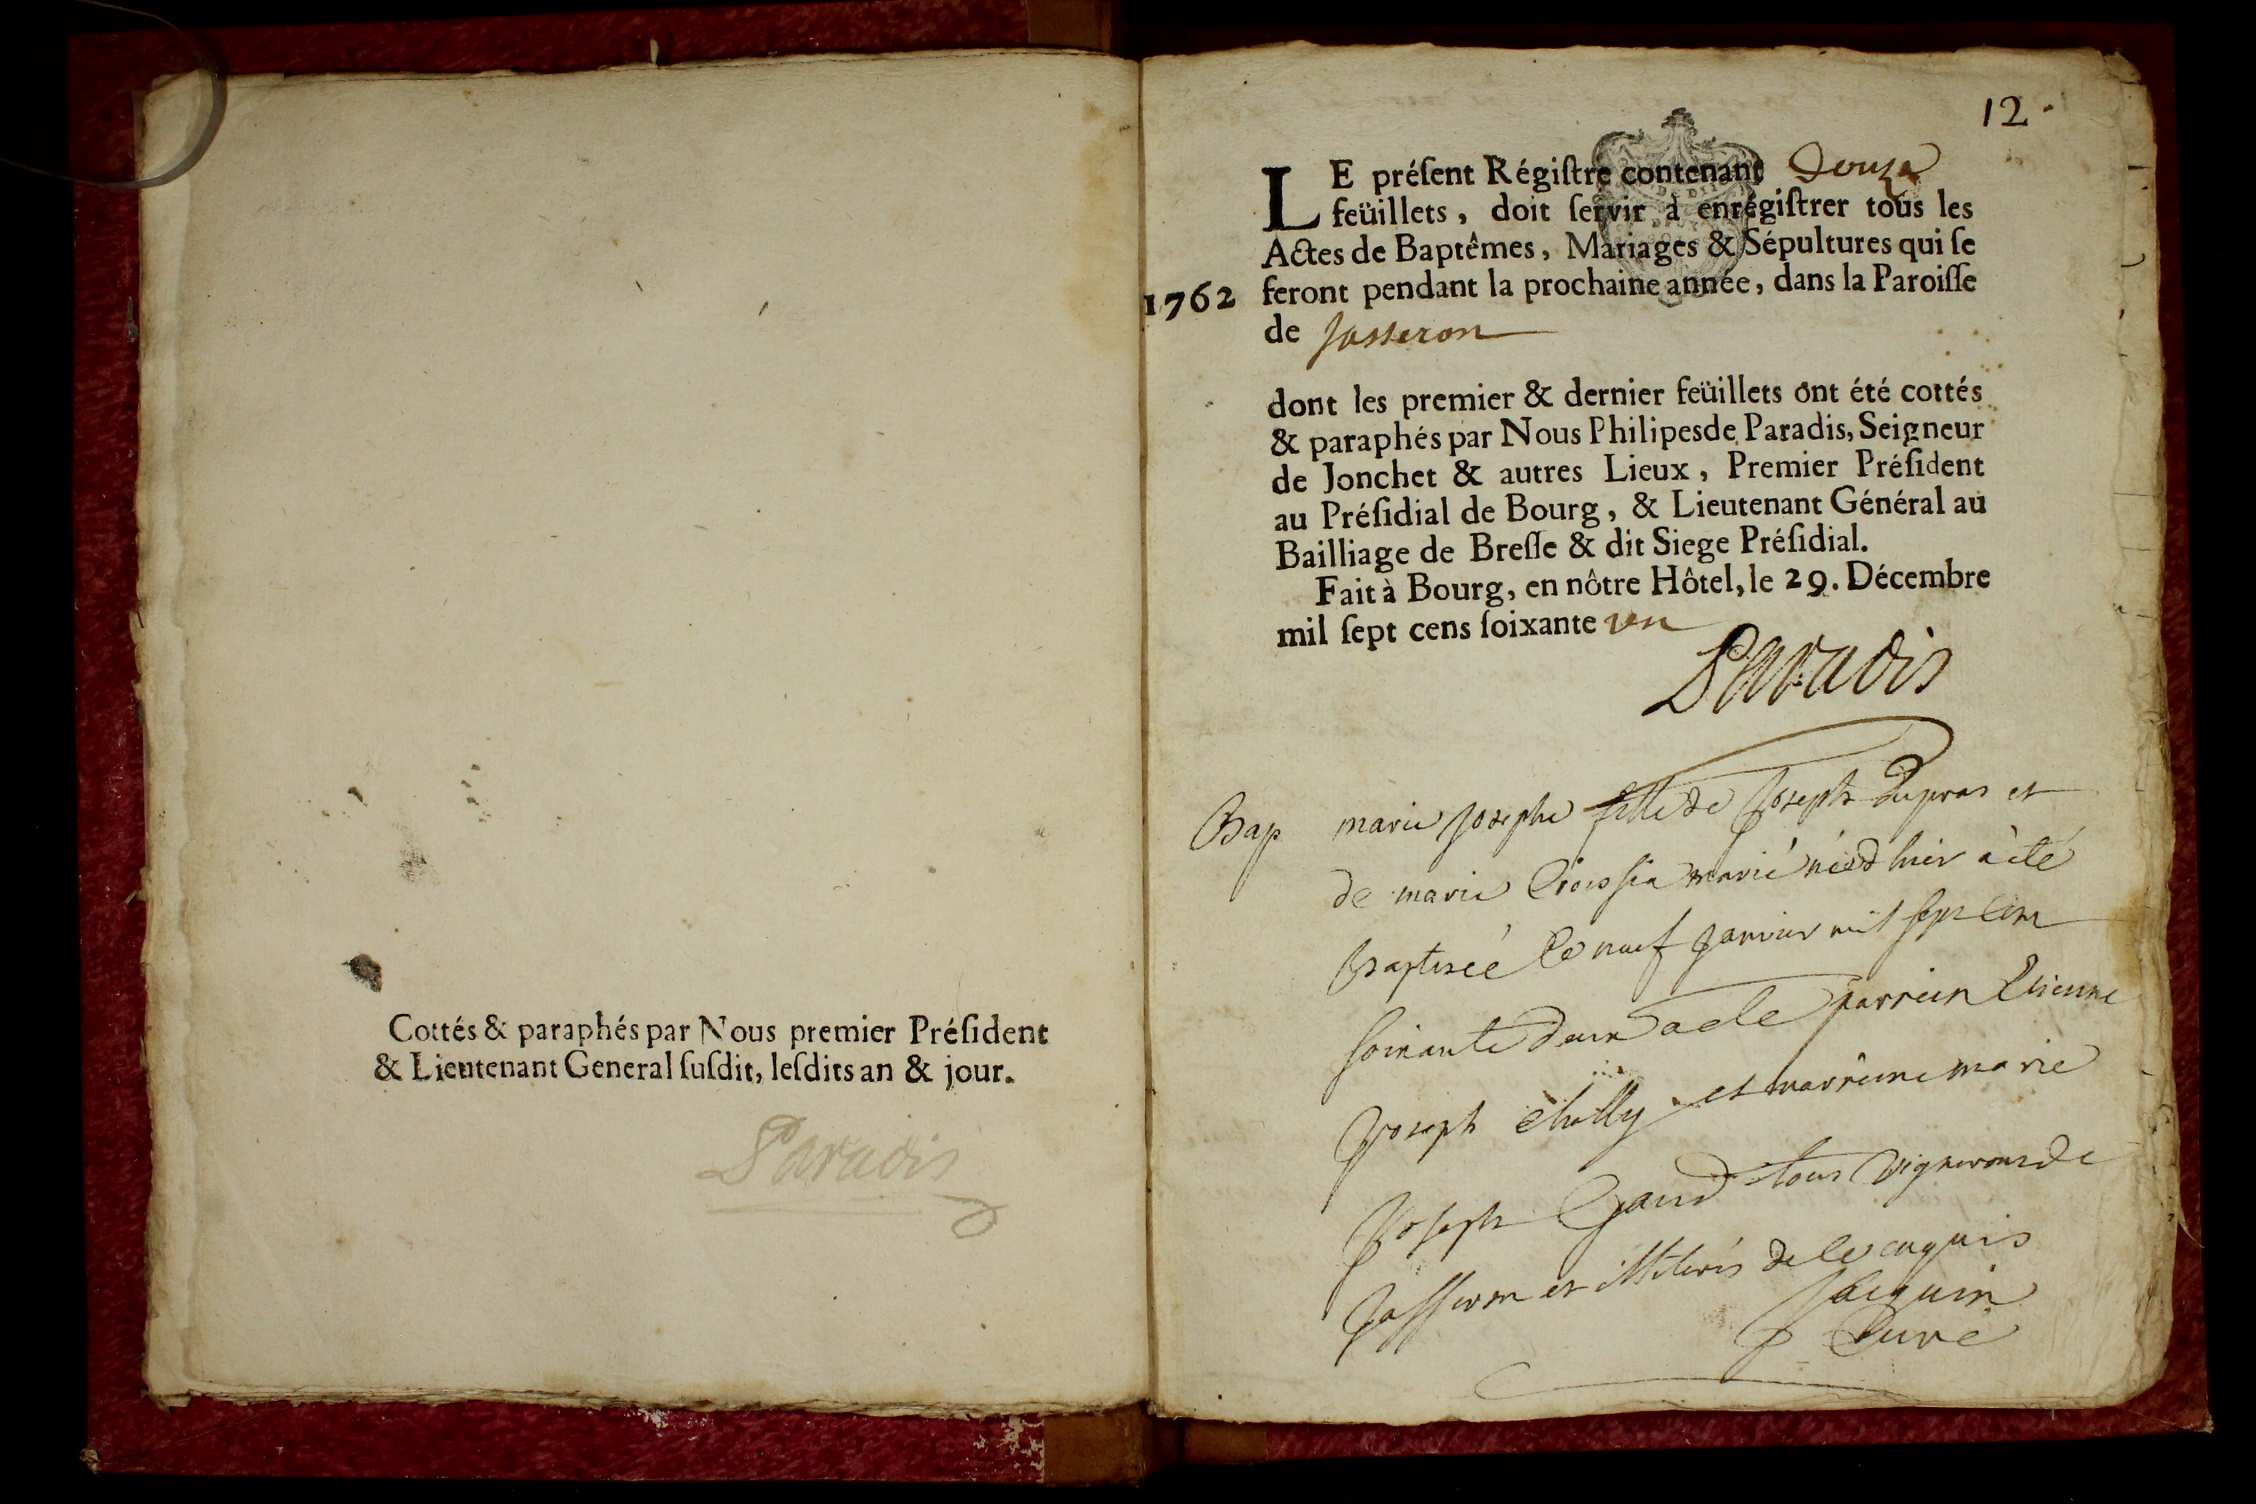 Cottés & paraphés par Nous premier Préſident
& Lieutenant General ſuſdit, leſdits an & jour.
Paradis
12.
LE préſent Régiſtre contenant Douze
feüillets, doit ſervir à enrégiſtrer tous les
Actes de Baptêmes, Mariages & Sépultures qui ſe
1762 feront pendant la prochaine année, dans la Paroiſſe
de Jasseron
dont les premier & dernier feüillets ont été cottés
& paraphés par Nous Philipes de Paradis, Seigneur
de Jonchet & autres Lieux, Premier Préſident
au Préſidial de Bourg, & Lieutenant Général au
Bailliage de Breſſe & dit Siege Préſidial.
Fait à Bourg, en nôtre Hôtel, le 29. Décembre
mil ſept cens ſoixante un
Paradis
Bap marie Josephe fille de Joseph dupras et
de marie marié née d hier à èté
Baptisée le neuf janvier mil sept cent
soixante deux a ele parrein Etienne
Joseph chilly et marreine marie
Joseph Gaud tous vignerons de
Jasseron et illiterés de le enquis
Jacquin
Curé